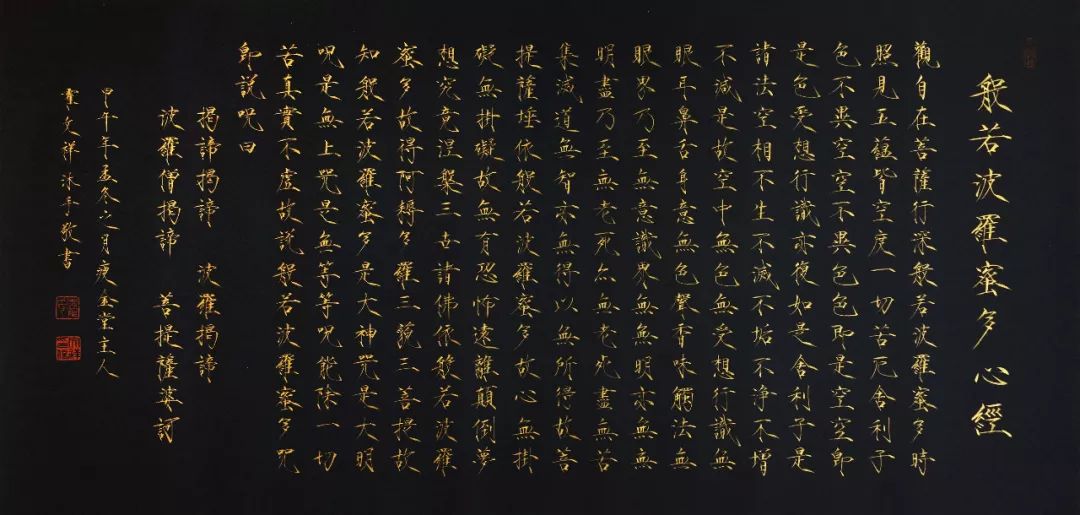 般若波羅蜜多心經
觀自在菩薩行深般若波羅蜜多時
照見五蘊皆空度一切苦厄舍利子
色不異空空不異色色即是空空即
是色受想行識亦復如是舍利子是
諸法空相不生不滅不垢不淨不增
不減是故空中無色無受想行識無
眼耳鼻舌身意無色聲香味觸法無
眼界乃至無意識界無無明亦無無
明盡乃至無老死亦無老死盡無苦
集滅道無智亦無得以無所得故菩
提薩埵依般若波羅蜜多故心無掛
礙無掛礙故無有恐怖遠離顛倒夢
想究竟涅槃三世諸佛依般若波羅
蜜多故得阿耨多羅三藐三菩提故
知般若波羅蜜多是大神咒是大明
咒是無上咒是無等等咒能除一切
苦真實不虛故說般若波羅蜜多咒
即說咒曰
揭諦揭諦 波羅揭諦
波羅僧揭諦 菩提薩婆訶
甲午年孟冬之月瘦金堂主人
文祥沐手敬書